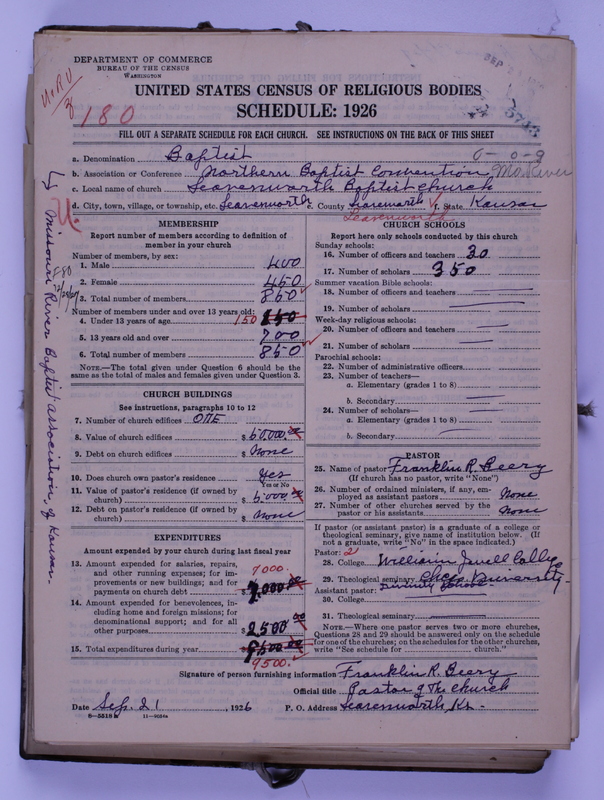 DEPARTMENT OF COMMERCE
BUREAU OF THE CENSUS
WASHINGTON
UNITED STATES CENSUS OF RELIGIOUS BODIES
SCHEDULE: 1926
180
FILL OUT A SEPARATE SCHEDULE FOR EACH CHURCH. SEE INSTRUCTIONS ON THE BACK OF THIS SHEET
a. Denomination Baptist 0-0-9
b. Association or Conference Northern Baptist Convention Mo. River
c. Local name of church Leavenworth Baptist Church
d. City, town, village, or township, etc. Leavenworth e. County Leavenworth f. State Kansas
Leavenworth
Missouri River Baptist Association of Kansas
MEMBERSHIP
Report number of members according to definition of member in your church
Number of members, by sex:
1. Male 400
2. Female 450
3. Total number of members 850
Number of members under and over 13 years old:
4. Under 13 years of age 150 150
5. 13 years old and over 700
6. Total number of members 850
NOTE.—The total given under Question 6 should be the same as the total of males and females given under Question 3.
CHURCH BUILDINGS
See instructions, paragraphs 10 to 12
7. Number of church edifices one
8. Value of church edifices $ 60,000.00
9. Debt on church edifices $ None
10. Does church own pastor's residence Yes
Yes or No
11. Value of pastor's residence (if owned by church) $ 6,000.00
12. Debt on pastor's residence (if owned by church) $ None
EXPENDITURES
Amount expended by your church during last fiscal year
13. Amount expended for salaries, repairs, and other running expenses; for improvements or new buildings; and for payments on church debt $ 7,000.00
7000.
14. Amount expended for benevolences, including home and foreign missions; for denominational support; and for all other purposes 2500.00
15. Total expenditures during year $ 9500.00
9500.
CHURCH SCHOOLS
Report here only schools conducted by this church
Sunday schools:
16. Number of officers and teachers 30
17. Number of scholars 350
Summer vacation Bible schools:
18. Number of officers and teachers
19. Number of scholars
Week-day religious schools:
20. Number of officers and teachers
21. Number of scholars
Parochial schools:
22. Number of administrative officers
23. Number of teachers—
a. Elementary (grades 1 to 8)
b. Secondary
24. Number of scholars—
a. Elementary (grades 1 to 8)
b. Secondary
PASTOR
25. Name of pastor Franklin R. Beery
(If church has no pastor, write "None")
26. Number of ordained ministers, if any, employed as assistant pastors None
27. Number of other churches served by the pastor or his assistants None
If pastor (or assistant pastor) is a graduate of a college or theological seminary, give name of institution below. (If not a graduate, write "No" in the space indicated.)
Pastor: 2
28. College William Jewell College
29. Theological seminary Chgo University
Assistant pastor: Divinity School
30. College
31. Theological seminary
NOTE.—Where one pastor serves two or more churches, Questions 28 and 29 should be answered only on the schedule for one of the churches; on the schedules for the other churches, write "See schedule for church."
Signature of person furnishing information Franklin R. Beery
Official title Pastor of the church
Date Sep. 21, 1926 P. O. Address Leavenworth, Ks.
8—5518a 11—9084a